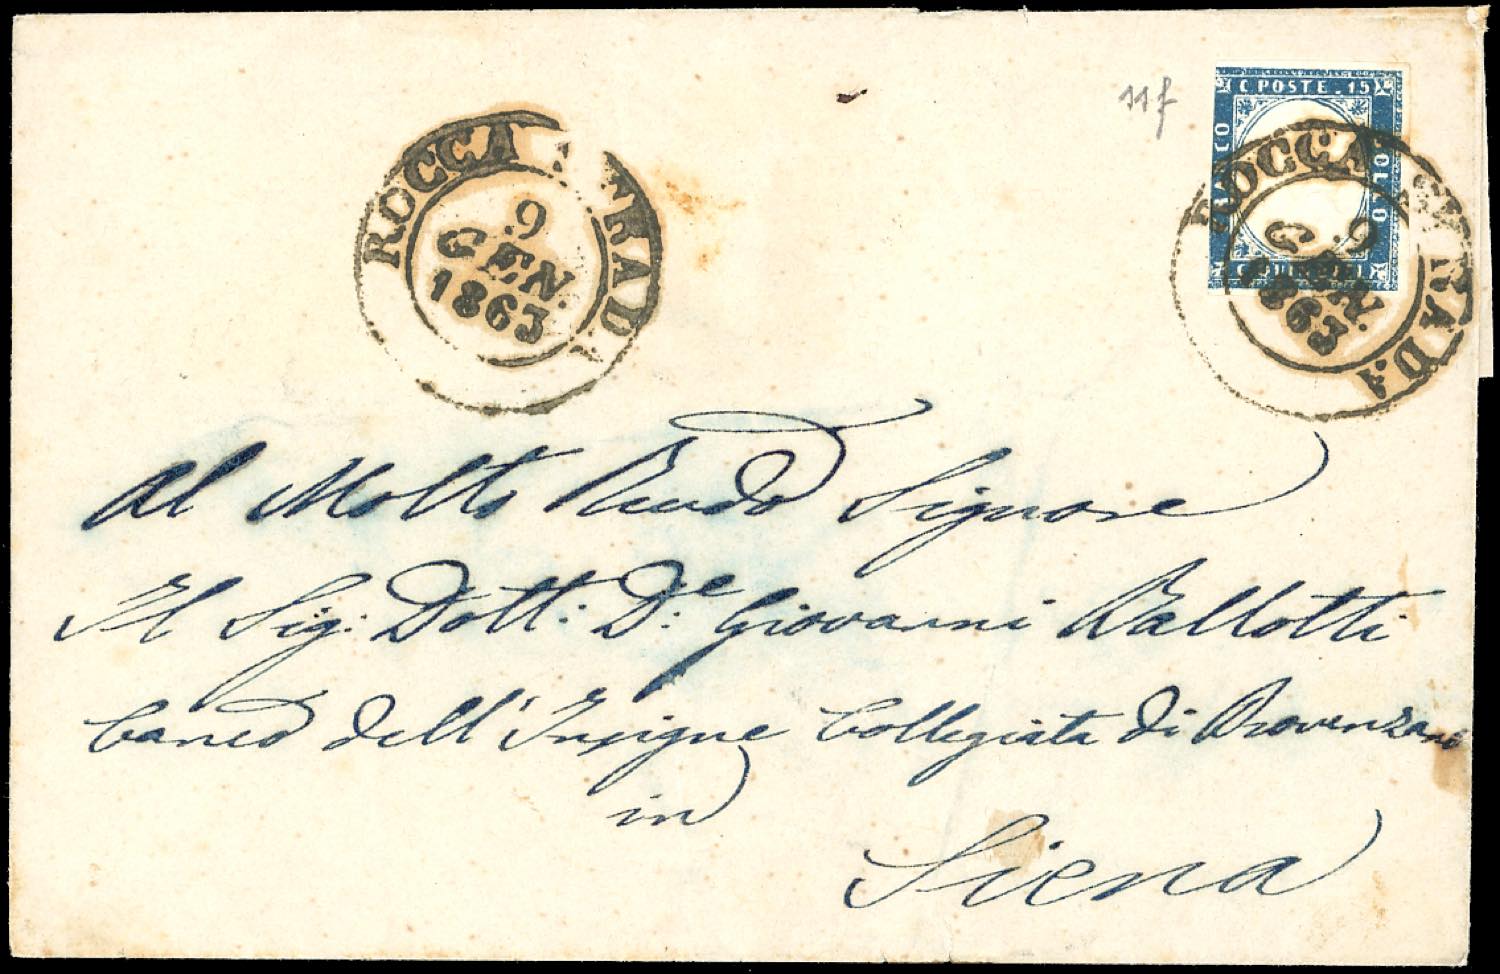 11f
C POSTE. 15
FRANCO
BOLLO
ROCCA STRADA
9
GEN.
1863
ROCCA STRADA
9
GEN.
1863
Al Molto Revdo Signore
Il Sig: Dott: D: Giovanni Ballotti
Canco dell'Insigne Collegiata di Provenzano
in
Siena